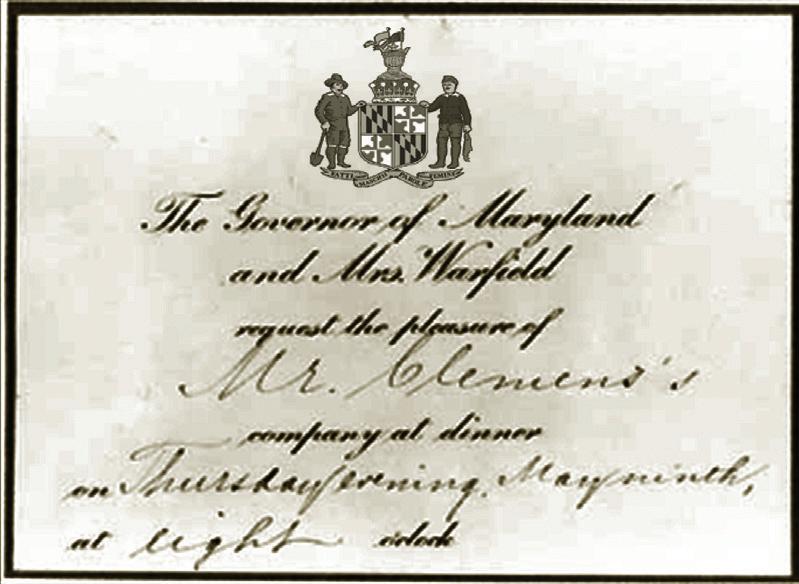 FATTI MASCHII PAROLE FEMINE
The Governor of Maryland
and Mrs. Warfield
request the pleasure of
Mr. Clemens's
company at dinner
on Thursday evening, May ninth,
at eight o'clock